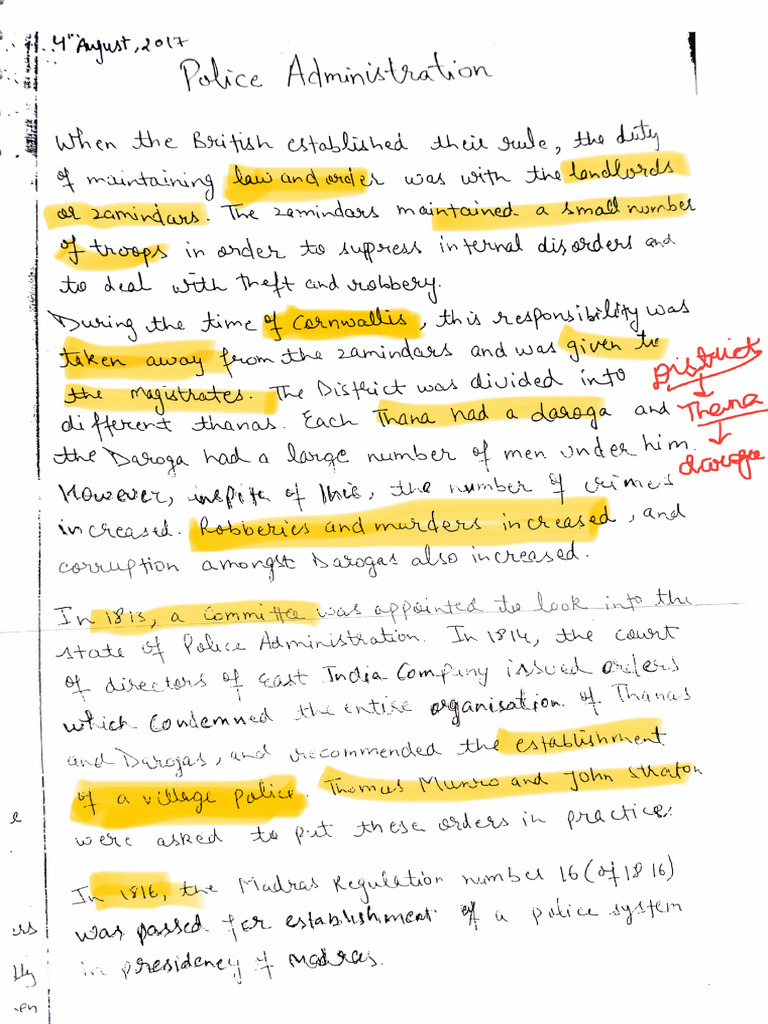 4th August, 2017
Police Administration
When the British established their rule, the duty
of maintaining law and order was with the landlords
or zamindars. The zamindars maintained a small number
of troops in order to suppress internal disorders and
to deal with theft and robbery.
During the time of Cornwallis, this responsibility was
taken away from the zamindars and was given to
the magistrates. The District was divided into
different thanas. Each Thana had a daroga and
the Daroga had a large number of men under him.
However, inspite of this, the number of crimes
increased. Robberies and murders increased, and
corruption amongst Darogas also increased.
District
↓
Thana
↓
daroga
In 1813, a committee was appointed to look into the
state of Police Administration. In 1814, the court
of directors of East India Company issued orders
which condemned the entire organisation of Thanas
and Darogas, and recommended the establishment
of a village police. Thomas Munro and John Straton
were asked to put these orders in practice.
In 1816, the Madras Regulation number 16 (of 1816)
was passed for establishment of a police system
in presidency of Madras.
e
ers
lly